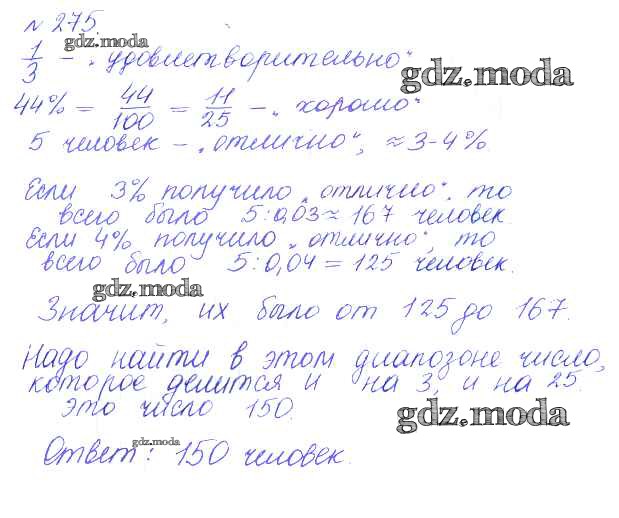 № 275.
gdz.moda
1/3 – „удовлетворительно“
gdz.moda
44% = 44/100 = 11/25 – „хорошо“
5 человек – „отлично“, ≈ 3-4%
Если 3% получило „отлично“, то
всего было 5:0,03 ≈ 167 человек.
Если 4% получило „отлично“, то
всего было 5:0,04 = 125 человек.
gdz.moda
Значит, их было от 125 до 167.
Надо найти в этом диапозоне число,
которое делится и на 3, и на 25.
это число 150.
gdz.moda
gdz.moda
Ответ: 150 человек.